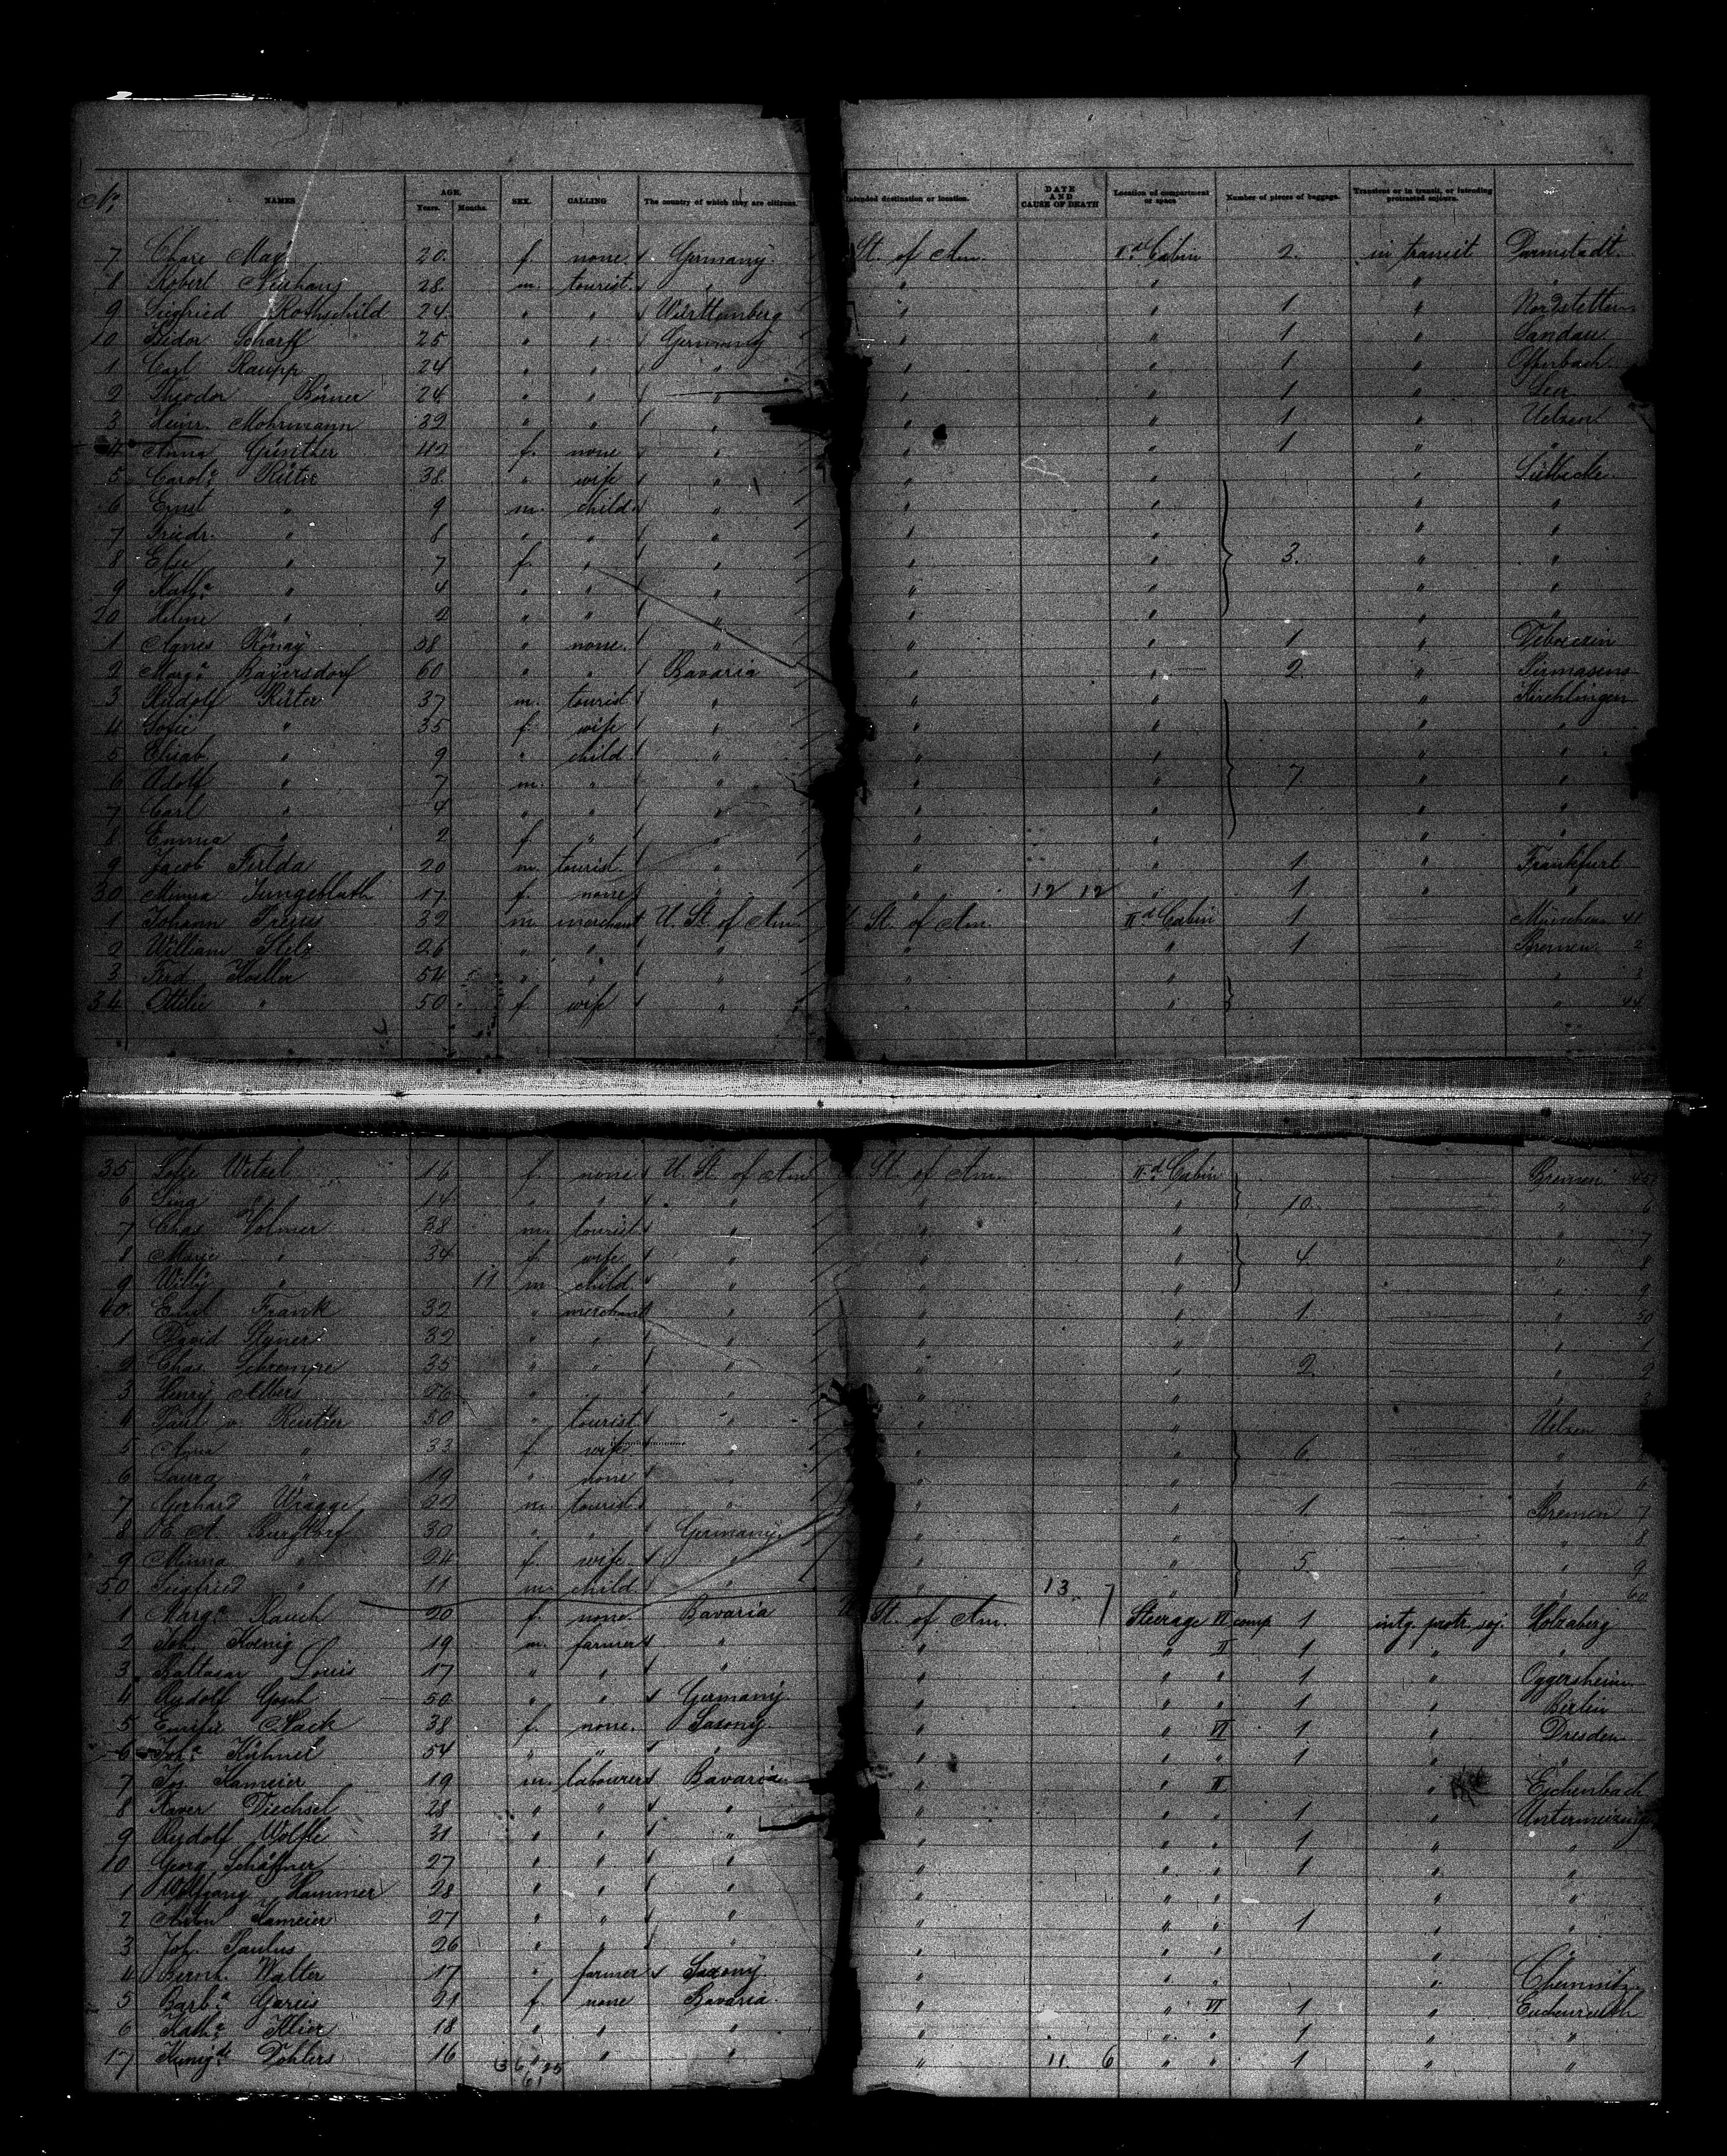 No. NAMES AGE. Years. Months. SEX. CALLING The country of which they are citizens. Intended destination or location. DATE AND CAUSE OF DEATH Location of compartment or space Number of pieces of baggage. Transient or in transit, or intending protracted sojourn.
7 May 20 f. none Germany St. of Am. IId Cabin 2. in transit Darmstadt.
8 Robert Neuhaus 28 m. tourist. " " " "
9 Siegfried Rothschild 24 " " Württemberg " " 1 " Nordstetten
10 Isidor Scharff 25 " " Germany " " 1 " Landau
1 Carl Raupp 24 " " " " " 1 " Offenbach
2 Theodor Börner 24 " " " " " 1 " Leer
3 Heinr. Mohrmann 32 " " " " " 1 " Uelzen
4 Anna Günther 42 f. none " " " 1 " "
5 Carole Rüter 38 " wife " " " " Lübbecke
6 Ernst " 9 m. child " " " " "
7 Friedr. " 8 " " " " " " "
8 Else " 7 f. " " " " 3. " "
9 Kathe " 4 " " " " " " "
20 Helene " 2 " " " " " " "
1 Agnes Rönay 58 " none. " " " 1 "
2 Marge Bayersdorf 60 " " Bavaria " " 2. " Pirmasens
3 Rudolf Rüter 37 m. tourist " " " " Kirchlingen
4 Sofie " 35 f. wife " " " " "
5 Elisab " 9 " child " " " " "
6 Adolf " 7 m. " " " " 7 " "
7 Carl " 4 " " " " " " "
8 Emma " 2 f. " " " " " "
9 Jacob 20 m. tourist " " " 1 " Frankfurt
30 Minna Jungeblath 17 f. none " " 12 12 " 1. " "
1 Johann 32 m. merchant U. St. of Am. U. St. of Am. IId Cabin 1 München 41
2 William Stilz 26 " " " " " 1 Bremen 2
3 Ferd. Koeller 54 " " " " " " 3
34 Ottilie " 50 f. wife " " " " 44
35 Sofie Wetzel 16 f. none U. St. of Am. St. of Am. IId Cabin Bremen 45
6 Lina " 14 " " " " " 10. " 6
7 Chas Volmer 38 m. tourist " " " " 7
8 Marie " 34 f. wife " " " 4. " 8
9 Willy " 11 m child " " " " 9
40 Emil Frank 32 " merchant " " " 1. " 50
1 David Styner 32 " " " " " " 1
2 Chas. 35 " " " " " 2. " 2
3 Henry Albers " " " " " " 3
4 Paul v. Reutter 50 " tourist " " " Uelzen
5 Anna " 33 f. wife " " " 6. "
6 Laura " 19 " none " " " " 6
7 Gerhard Wragge 22 m. tourist " " " 1. Bremen 7
8 C. A. Burgdorf 30 " " Germany. " " " 8
9 Minna " 24 f. wife " " " 5. " 9
50 Siegfried " 11 m. child " " 13. 7 " " 60
1 Marge Rauch 20 f. none. Bavaria U. St. of Am. Steerage VI comp 1 intg. protr. soj. Holzaberg
2 Joh. Koenig 19 m. farmer " " " II 1 " "
3 Baltasar Louis 17 " " " " " " 1 " Oggersheim
4 Rudolf Gosch 50 " " Germany " " " 1 " Berlin
5 Nack 38 f. none. Saxony. " " VI 1 " Dresden
6 Johe Kühnel 54 " " " " " " 1 " "
7 Jos. Kameier 19 m. labourer Bavaria " " II " Eschenbach
8 Xaver Diechsel 28 " " " " " " 1 "
9 Rudolf Wölfle 31 " " " " " " 1 " "
10 Georg Schäffner 27 " " " " " " 1 " "
1 Wolfgang Hammer 28 " " " " " " " "
2 Anton Kameier 27 " " " " " " 1 " "
3 Joh. Paulus 26 " " " " " " " "
4 Bernh. Walter 17 " farmer Saxony. " " " " Chemnitz
5 Barba Gareis 21 f. none Bavaria. " " VI 1 "
6 Kathe Klier 18 " " " " " " 1 " "
17 Kunigde Döhlers 16 " " " " 11. 6 " " 1 " "
36 25
61